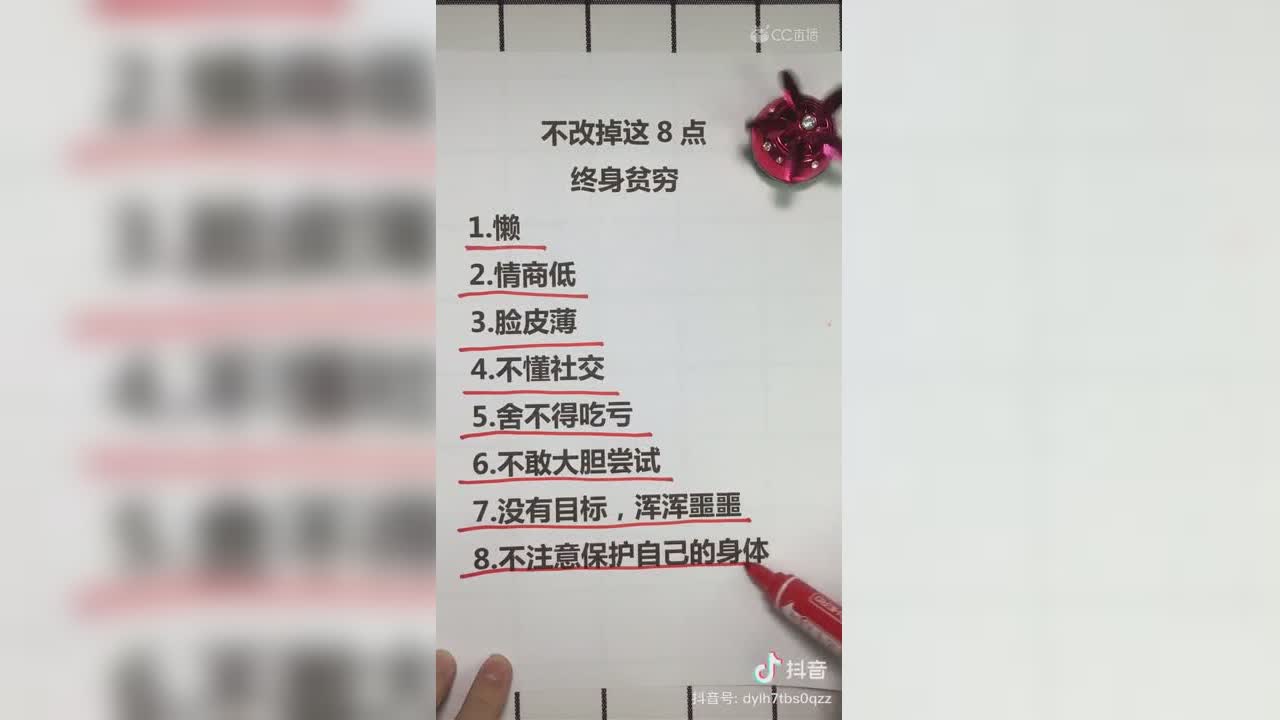 CC直播
不改掉这 8 点
终身贫穷
1.懒
2.情商低
3.脸皮薄
4.不懂社交
5.舍不得吃亏
6.不敢大胆尝试
7.没有目标，浑浑噩噩
8.不注意保护自己的身体
抖音
抖音号: dylh7tbs0qzz